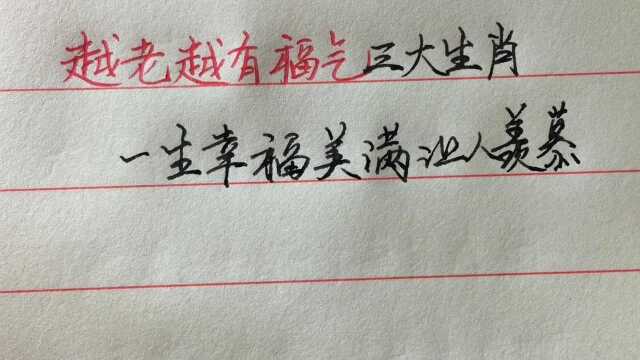 越老越有福气三大生肖
一生幸福美满让人羡慕